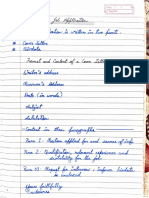 Job Application
Application is written in two parts:
Cover letter
Biodata
Format and Content of a Cover Letter
Sender's address
Receiver's address
Date (in words)
Subject
Salutation
Content in three paragraphs
Para 1: Position applied for and source of info
Para 2: Qualification, relevant experience and suitability for the job
Para 3: Request for interview; biodata is enclosed
Yours faithfully